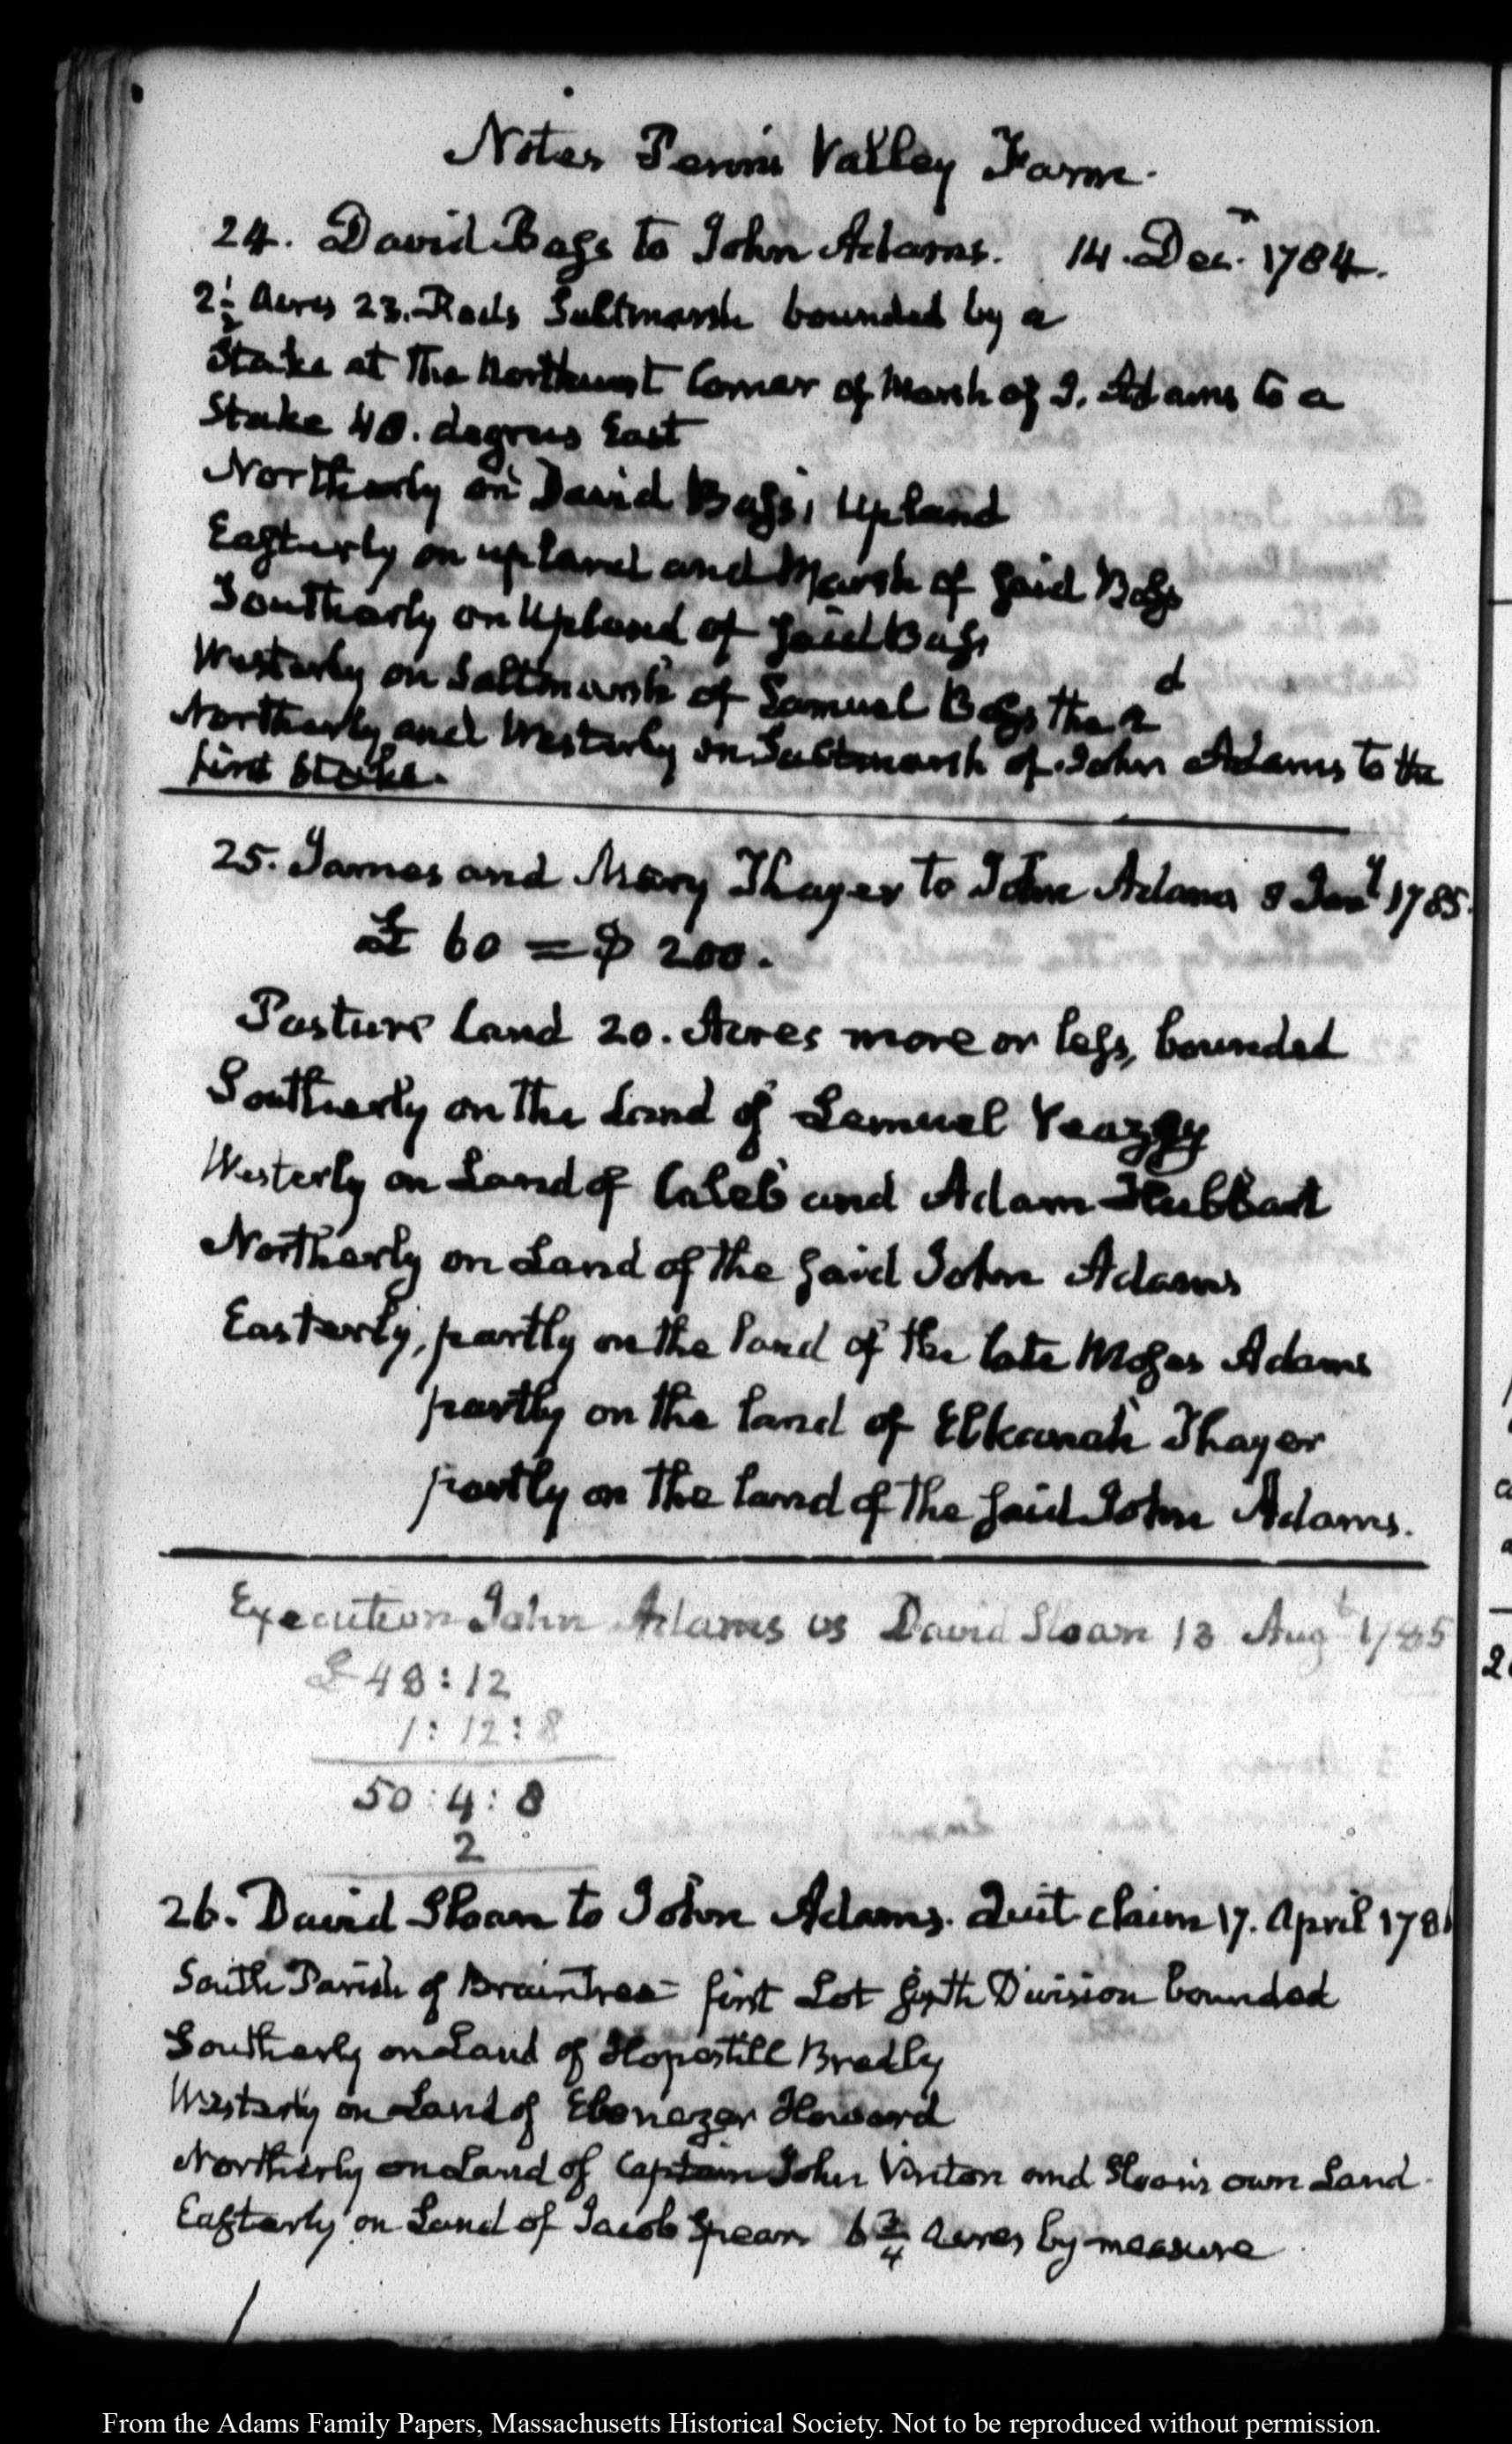 Notes Penns Valley Farm.
24. David Bass to John Adams. 14. Decr. 1784.
2½ Acres 23. Rods Saltmarsh bounded by a
Stake at the Northwest Corner of Marsh of J. Adams to a
Stake 40. degrees East
Northerly on David Bass's Upland
Easterly on upland and Marsh of said Bass
Southerly on Upland of said Bass
Westerly on Saltmarsh of Samuel Bass the 2d
Northerly and Westerly on Saltmarsh of John Adams to the
first Stake.
25. James and Mary Thayer to John Adams 8 Jany 1785.
£ 60 = $ 200.
Pasture land 20. Acres more or less, bounded
Southerly on the Land of Lemuel Veazey
Westerly on Land of Caleb and Adam Hubbart
Northerly on Land of the said John Adams
Easterly, partly on the land of the late Moses Adams
partly on the land of Elkanah Thayer
partly on the land of the said John Adams.
Execution John Adams vs David Sloan 13 Augt 1785
£ 48:12
1:12:8
50:4:8
2
26. David Sloan to John Adams. Quit claim 17. April 178
South Parish of Braintree first Lot sixth Division bounded
Southerly on Land of Hopestill Bradly
Westerly on Land of Ebenezer Howard
Northerly on Land of Captain John Vinton and Sloan's own Land
Easterly on Land of Jacob Spear 6 3/4 Acres by measure
From the Adams Family Papers, Massachusetts Historical Society. Not to be reproduced without permission.